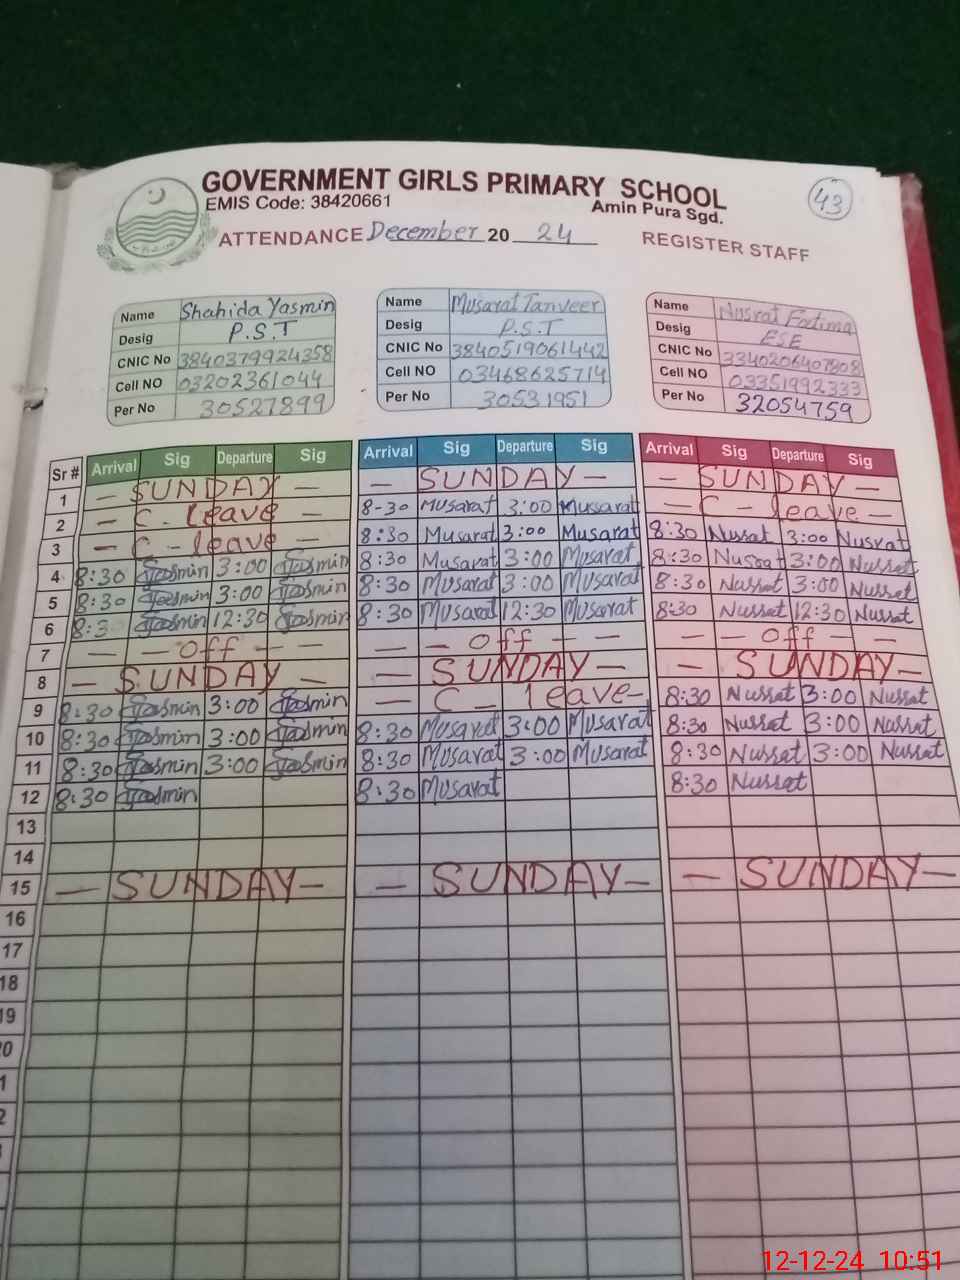 GOVERNMENT GIRLS PRIMARY SCHOOL
EMIS Code: 38420661 Amin Pura Sgd.
43
ATTENDANCE December 20 24 REGISTER STAFF
Name Shahida Yasmin
Desig P.S.T
CNIC No 3840379924358
Cell NO 03202361044
Per No 30527899
Name Musarat Tanveer
Desig P.S.T
CNIC No 3840519061442
Cell NO 03468625714
Per No 30531951
Name Nusrat Fatima
Desig ESE
CNIC No 3340206407908
Cell NO 03351992333
Per No 32054759
Sr # Arrival Sig Departure Sig Arrival Sig Departure Sig Arrival Sig Departure Sig
1 - SUNDAY - - SUNDAY - - SUNDAY -
2 - C - leave - 8-30 Musarat 3:00 Mussarat - C - leave -
3 - C - leave - 8:30 Musarat 3:00 Musarat 8:30 Nussat 3:00 Nusrat
4 8:30 Yasmin 3:00 Yasmin 8:30 Musarat 3:00 Musarat 8:30 3:00 Nussat
5 8:30 Yasmin 3:00 Yasmin 8:30 Musarat 3:00 Musarat 8:30 Nussat 3:00 Nussat
6 8:3 Yasmin 12:30 Yasmin 8:30 Musarat 12:30 Musarat 8:30 Nussat 12:30 Nussat
7 - - Off - - - - Off - - - - Off - -
8 - SUNDAY - - SUNDAY - - SUNDAY -
9 8:30 Yasmin 3:00 Yasmin - C - leave - 8:30 Nussat 3:00 Nussat
10 8:30 Yasmin 3:00 Yasmin 8:30 Musarat 3:00 Musarat 8:30 Nussat 3:00 Nussat
11 8:30 Yasmin 3:00 Yasmin 8:30 Musarat 3:00 Musarat 8:30 Nussat 3:00 Nussat
12 8:30 Yasmin 8:30 Musarat 8:30 Nussat
13
14
15 - SUNDAY - - SUNDAY - - SUNDAY -
16
17
18
19
20
12-12-24 10:51